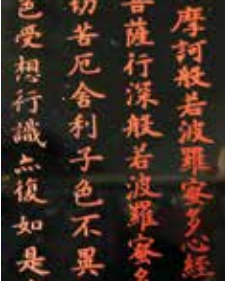 摩訶般若波羅蜜多心經
菩薩行深般若波羅蜜多
切苦厄舍利子色不異
色受想行識亦復如是